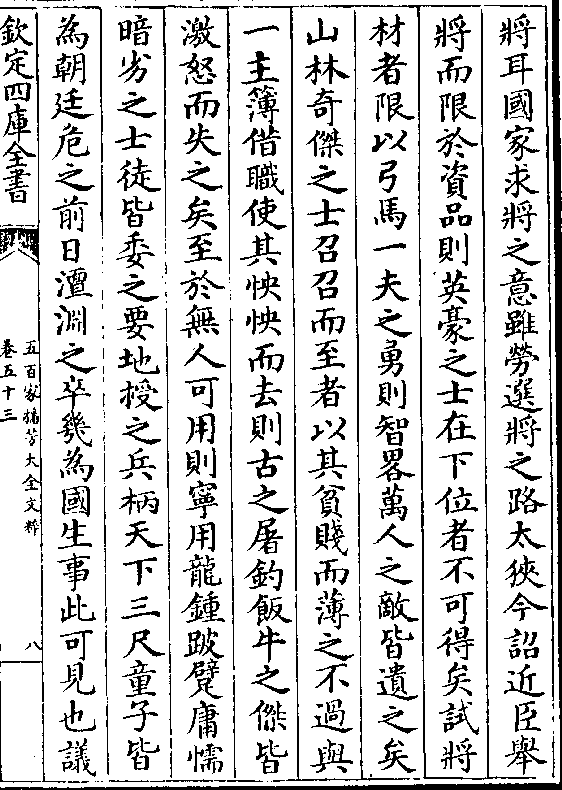 將耳國家求將之意雖勞選將之路太狹今詔近臣舉
將而限於資品則英豪之士在下位者不可得矣試將
材者限以弓馬一夫之勇則智畧萬人之敵皆遺之矣
山林奇傑之士召召而至者以其貧賤而薄之不過與
一主簿借職使其怏怏而去則古之屠釣飯牛之傑皆
激怒而失之矣至於無人可用則寧用龍鍾跛躄庸懦
暗劣之士徒皆委之要地授之兵柄天下三尺童子皆
為朝廷危之前日澶淵之卒幾為國生事此可見也議
欽定四庫全書
五百家播芳大全文粹
卷五十三
八